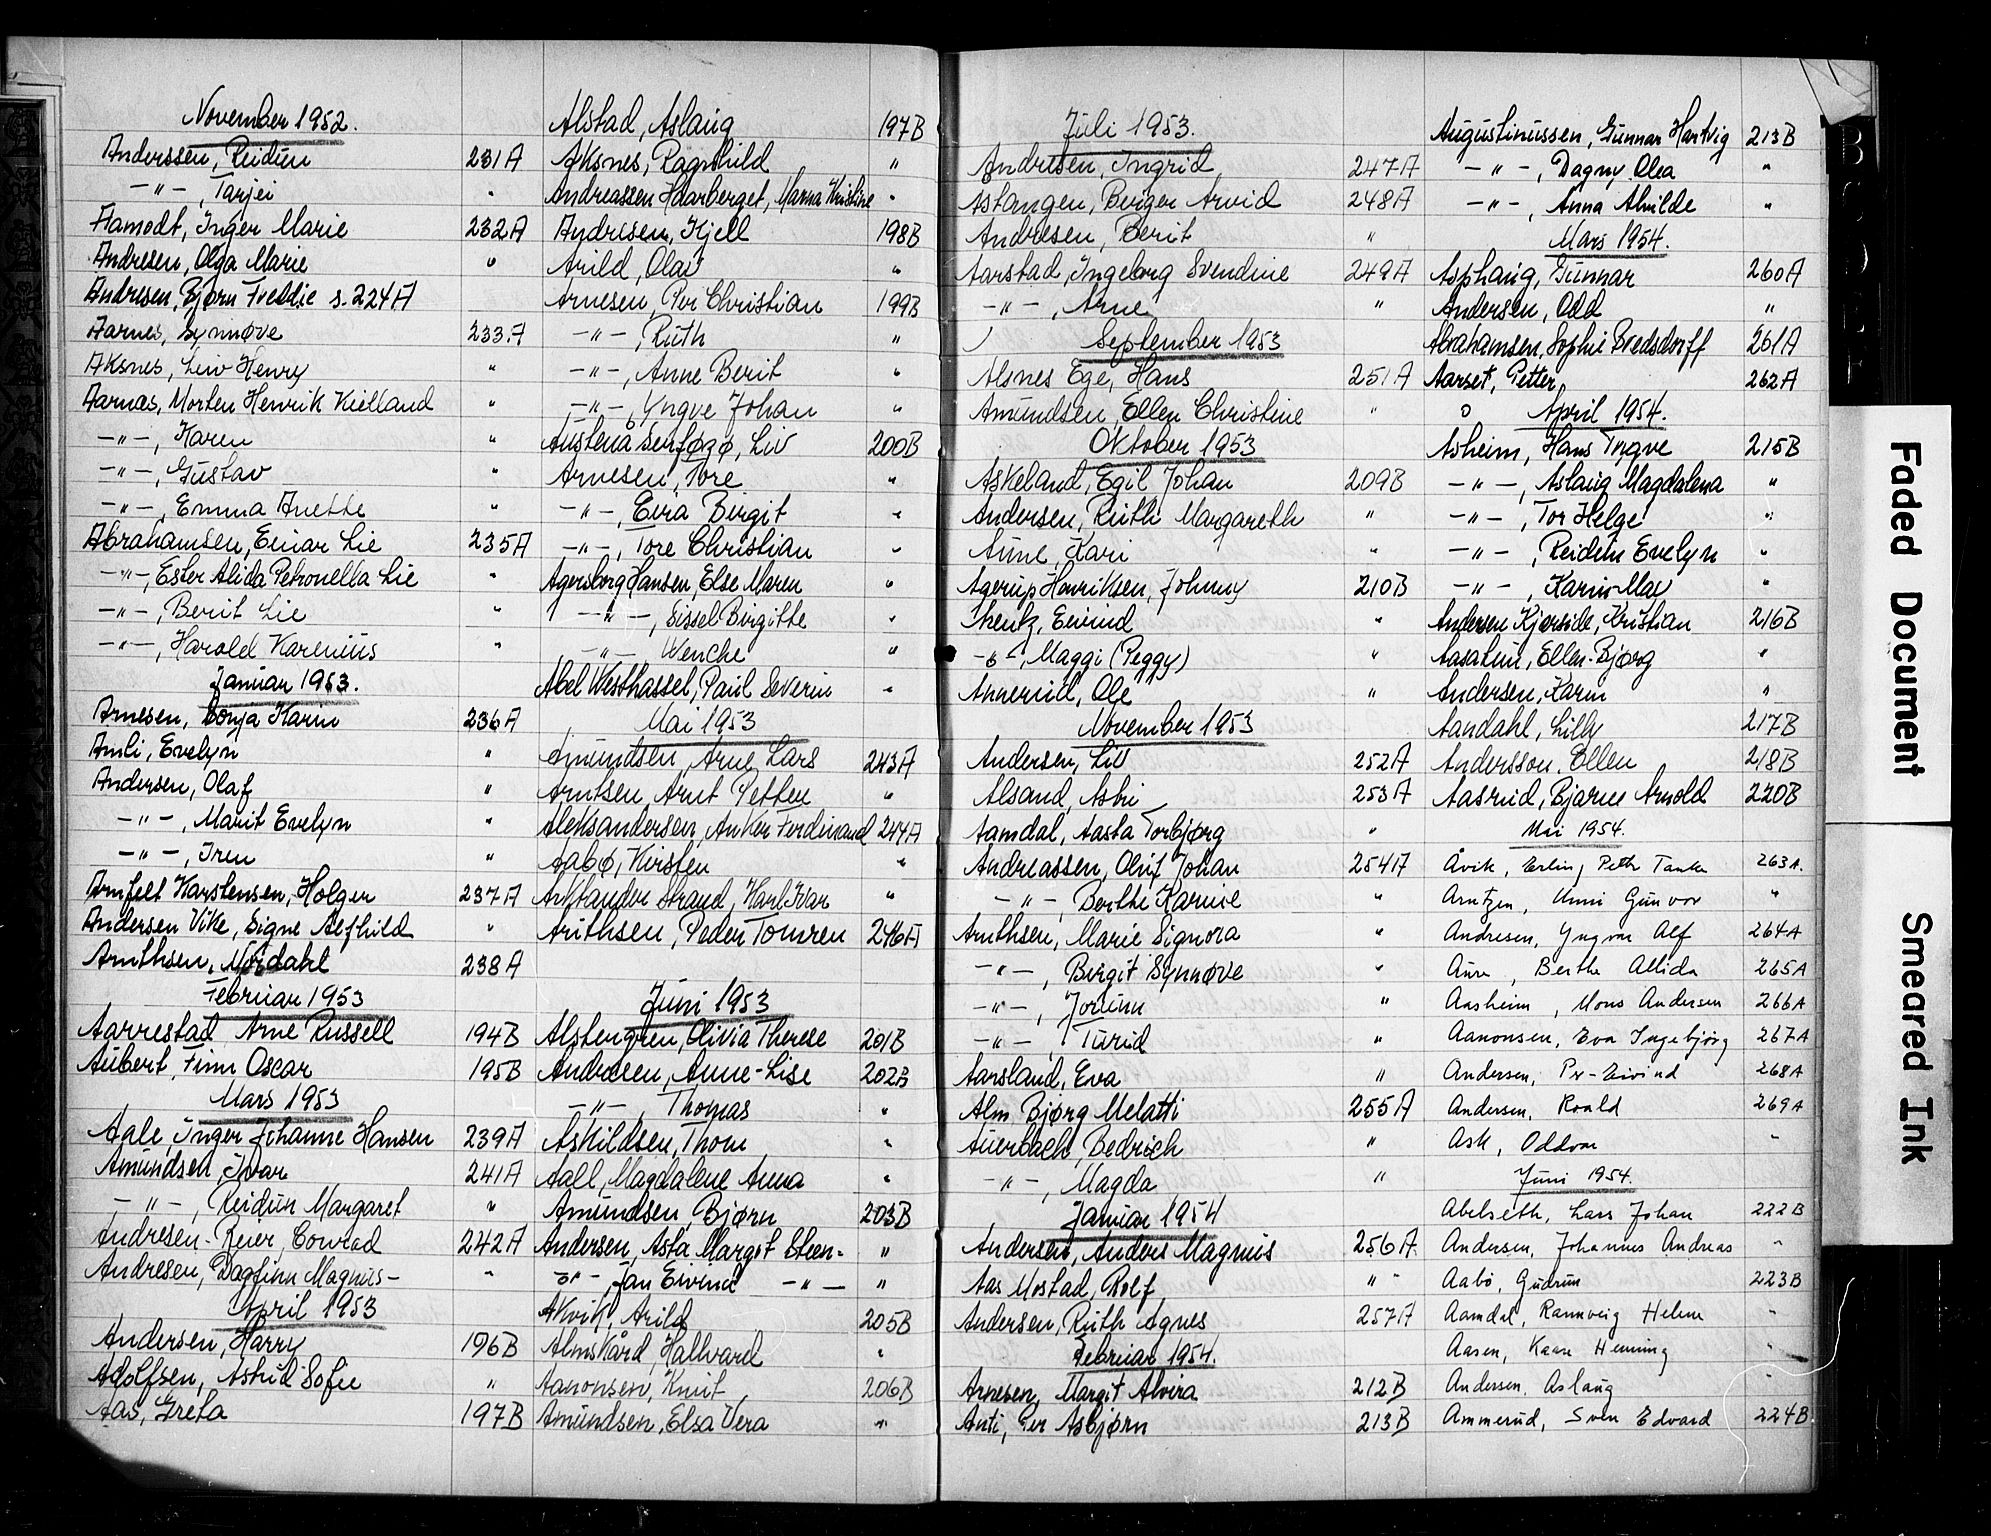 November 1952.
Anderssen, Reidun 231A
-"-, Tarjei "
Aamodt, Inger Marie 232A
Andresen, Olga Marie "
Andresen, Bjørn Freddie s. 224A
Aarnes, Synnøve 233A
Aksnes, Liv Henry "
Aarnæs, Morten Henrik Kielland "
-"-, Karen "
-"-, Gustav "
-"-, Emma Anette "
Abrahamsen, Einar Lie 235A
-"-, Ester Alida Petronella Lie "
-"-, Berit Lie "
-"-, Harold Karenius "
Januar 1953.
Arnesen, Sonja Karin 236A
Amli, Evelyn "
Andersen, Olaf "
-"-, Marit Evelyn "
-"-, Iren "
Armfelt Karstensen, Holger 237A
Andersen Vike, Signe Alfhild "
Arnthsen, Nordahl 238A
Februar 1953
Aarrestad Arne Russell 194B
Aubert, Finn Oscar 195B
Mars 1953
Aale, Inger Johanne Hansen 239A
Amundsen, Ivar 241A
-"-, Reidun Margaret "
Andresen-Reier, Conrad 242A
Andresen, Dagfinn Magnus- "
April 1953
Andersen, Harry 196B
Adolfsen, Astrid Sofie "
Aas, Greta 197B
Alstad, Aslaug 197B
Aksnes, Ragnhild "
Andreassen Haarberget, Marna Kristine "
Andresen, Kjell 198B
Arild, Olav "
Arnesen, Per Christian 199B
-"-, Ruth "
-"-, Anne Berit "
-"-, Yngve Johan "
Austenå Senføzø, Liv 200B
Arnesen, Tore "
-"-, Eira Birgit "
-"-, Tore Christian "
Agersborg Hansen, Else Maren "
-"-, Sissel Birgitte "
-"- Wenche "
Abel Westhassel, Paul Severin "
Mai 1953
Amundsen, Arne Lars 243A
Arntsen, Arnt Petter "
Aleksandersen, Anker Ferdinand 244A
Aabø, Kirsten "
Strand, Karl Ivar "
Arnthsen, Peder Tomren 246A
Juni 1953
Alstengren, Olivia Therese 201B
Andresen, Anne-Lise 202B
-"- Thomas "
Askildsen, Thom "
Aall, Magdalene Anna "
Amundsen, Bjørn 203B
Andersen, Asta Margot Steen- "
-"-, Jan Eivind -"- "
Akvik, Arild 205B
Almskård, Hallvard "
Aanonsen, Knut 206B
Amundsen, Elsa Vera "
Juli 1953.
Andresen, Ingrid 247A
Astangen, Birger Arvid 248A
Andresen, Berit "
Aarstad, Ingeborg Svendine 249A
-"-, Arne "
September 1953
Alsnes Ege, Hans 251A
Amundsen, Ellen Christine "
Oktober 1953
Askeland, Egil Johan 209B
Andersen, Ruth Margareth "
Aune, Kari "
Agerup Henriksen, Johnny 210B
Eivind "
-"-, Maggi (Peggy) "
Annerud, Ole "
November 1953
Andersen, Liv 252A
Alsand, Asbj 253A
Aamdal, Aasta Torbjørg "
Andreassen, Oluf Johan 254A
-"-, Berthe Karine "
Arnthsen, Marie Signora "
-"-, Birgit Synnøve "
-"-, Jorunn "
-"-, Turid "
Aarsland, Eva "
Alm Bjørg Melatti 255A
Auerbach, Bedrich "
-"-, Magda "
Januar 1954
Andersen, Anders Magnus 256A
Aas Mostad, Rolf "
Andersen, Ruth Agnes 257A
Februar 1954.
Arnesen, Margit Alvira 212B
Anti, Per Asbjørn 213B
Augustinussen, Gunnar Hartvig 213B
-"-, Dagny Olea "
-"-, Anna Alvilde "
Mars 1954.
Asphaug, Gunnar 260A
Andersen, Odd "
Abrahamsen, Sophie Bredsdorff 261A
Aarset, Petter 262A
April 1954.
Asheim, Hans Trygve 215B
-"-, Aslaug Magdalena "
-"-, Tor Helge "
-"-, Reidun Evelyn "
-"-, Karin-May "
Andersen Kjerside, Kristian 216B
Aasatun, Ellen-Bjørg "
Andersen, Karin "
Aandahl, Lilly 217B
Andersson, Ellen 218B
Aasrud, Bjarne Arnold 220B
Mai 1954.
Åvik, Erling Peth Tanke 263A.
Arntzen, Unni Gunvor "
Andresen, Yngvar Alf 264A
Aure, Berthe Allida 265A
Aasheim, Mons Andersen 266A
Aanonsen, Eva Ingebjørg 267A
Andersen, Per-Eivind 268A
Andersen, Roald 269A
Ask, Oddvar "
Juni 1954.
Abelseth, Lars Johan 222B
Andersen, Johannes Andreas "
Aabø, Gudrun 223B
Aamdal, Rannveig Helene "
Aasen, Kaare Henning "
Andersen, Aslaug "
Ammerud, Sven Edvard 224B
Faded Document
Smeared Ink